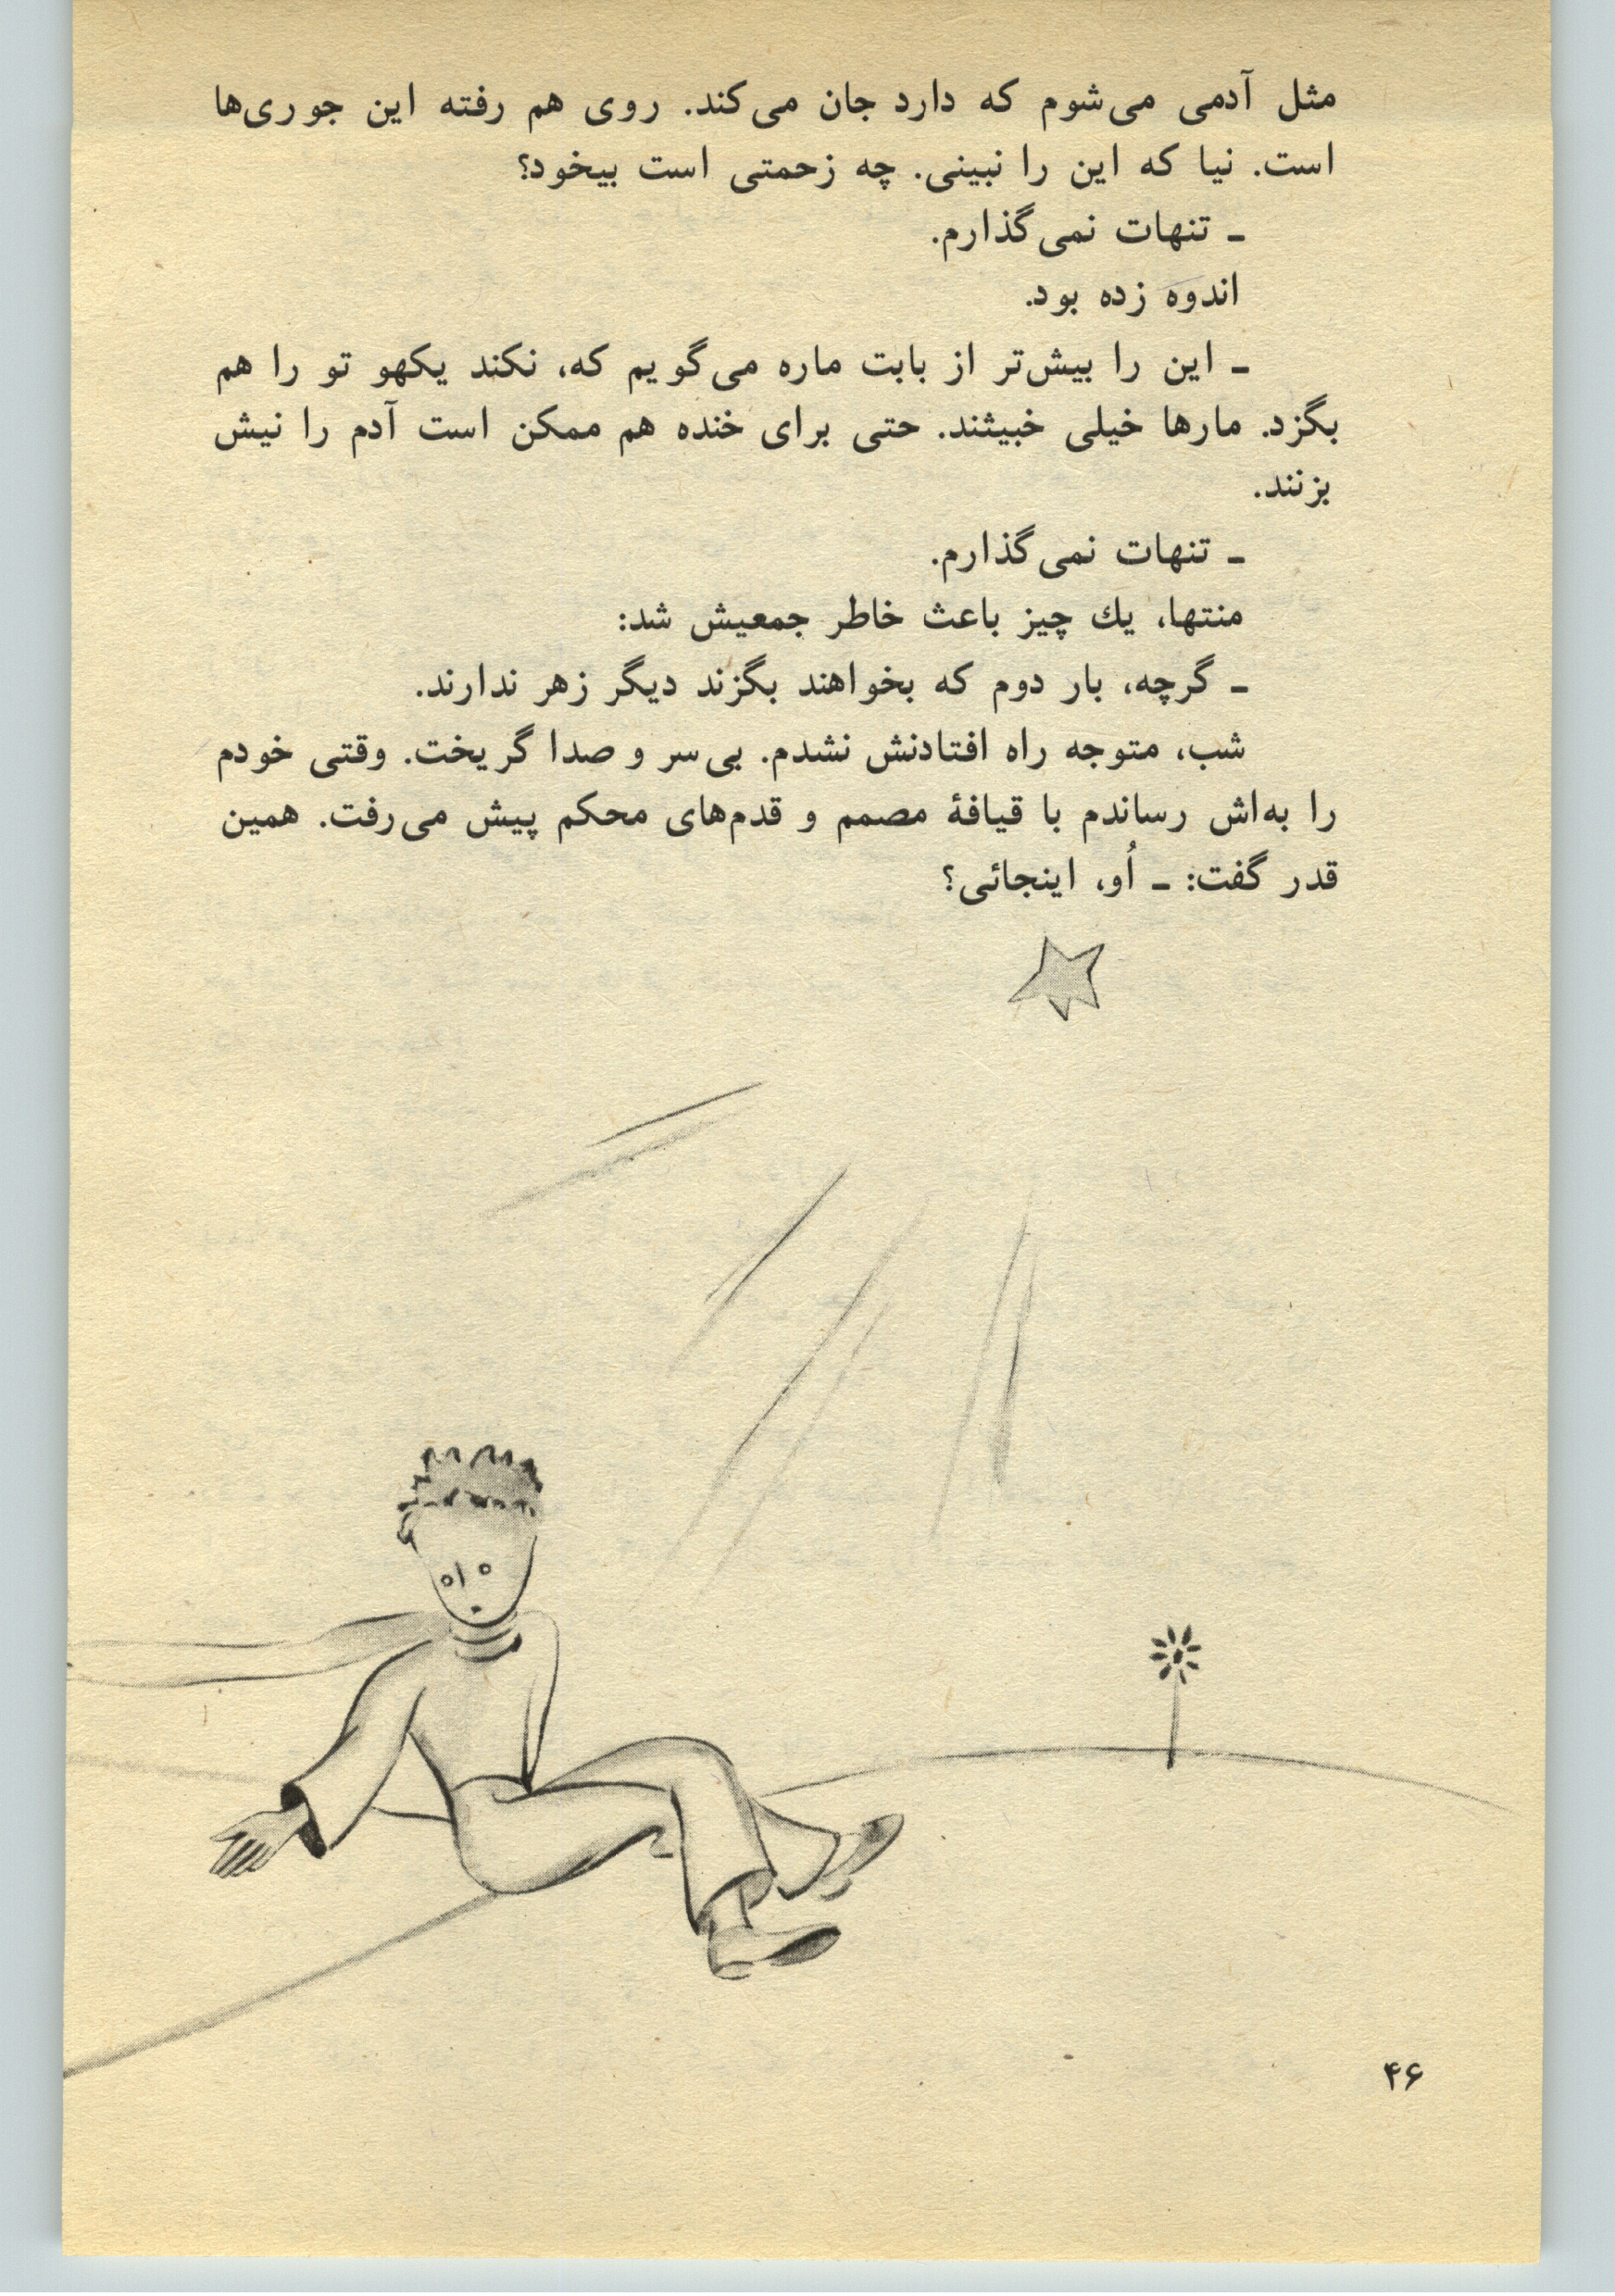 مثل آدمی می‌شوم که دارد جان می‌کند. روی هم رفته این جوری‌ها
است. نیا که این را نبینی. چه زحمتی است بیخود؟
ـ تنهات نمی‌گذارم.
اندوه زده بود.
ـ این را بیش‌تر از بابت ماره می‌گویم که، نکند یکهو تو را هم
بگزد. مارها خیلی خبیثند. حتی برای خنده هم ممکن است آدم را نیش
بزنند.
ـ تنهات نمی‌گذارم.
منتها، یك چیز باعث خاطر جمعیش شد:
ـ گرچه، بار دوم که بخواهند بگزند دیگر زهر ندارند.
شب، متوجه راه افتادنش نشدم. بی‌سر و صدا گریخت. وقتی خودم
را به‌اش رساندم با قیافۀ مصمم و قدم‌های محکم پیش می‌رفت. همین
قدر گفت: ـ اُو، اینجائی؟
۴۶